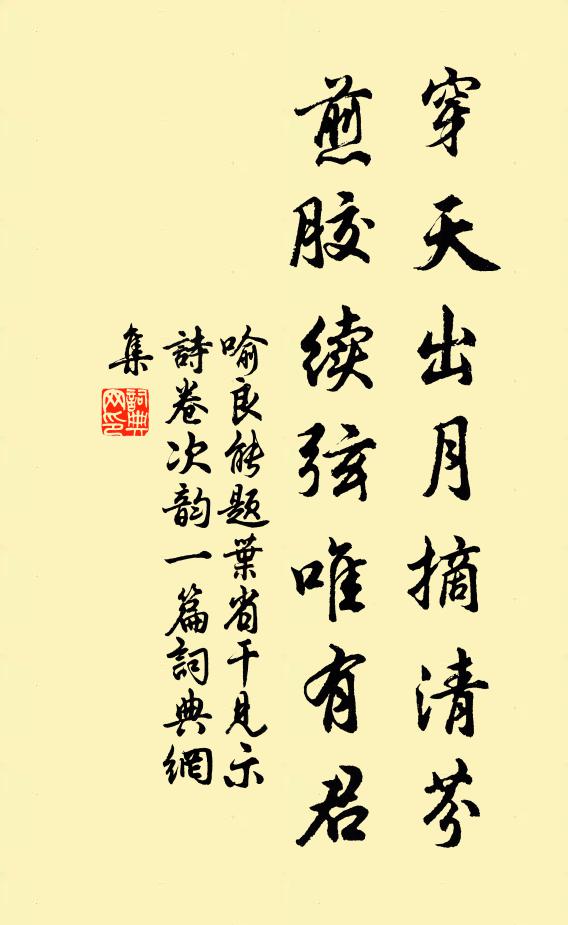 穿天出月摘清芬
煎胶续弦唯有君
喻良能题葉省干见示
詩卷次韵一篇詞典網
集
詞典
网印